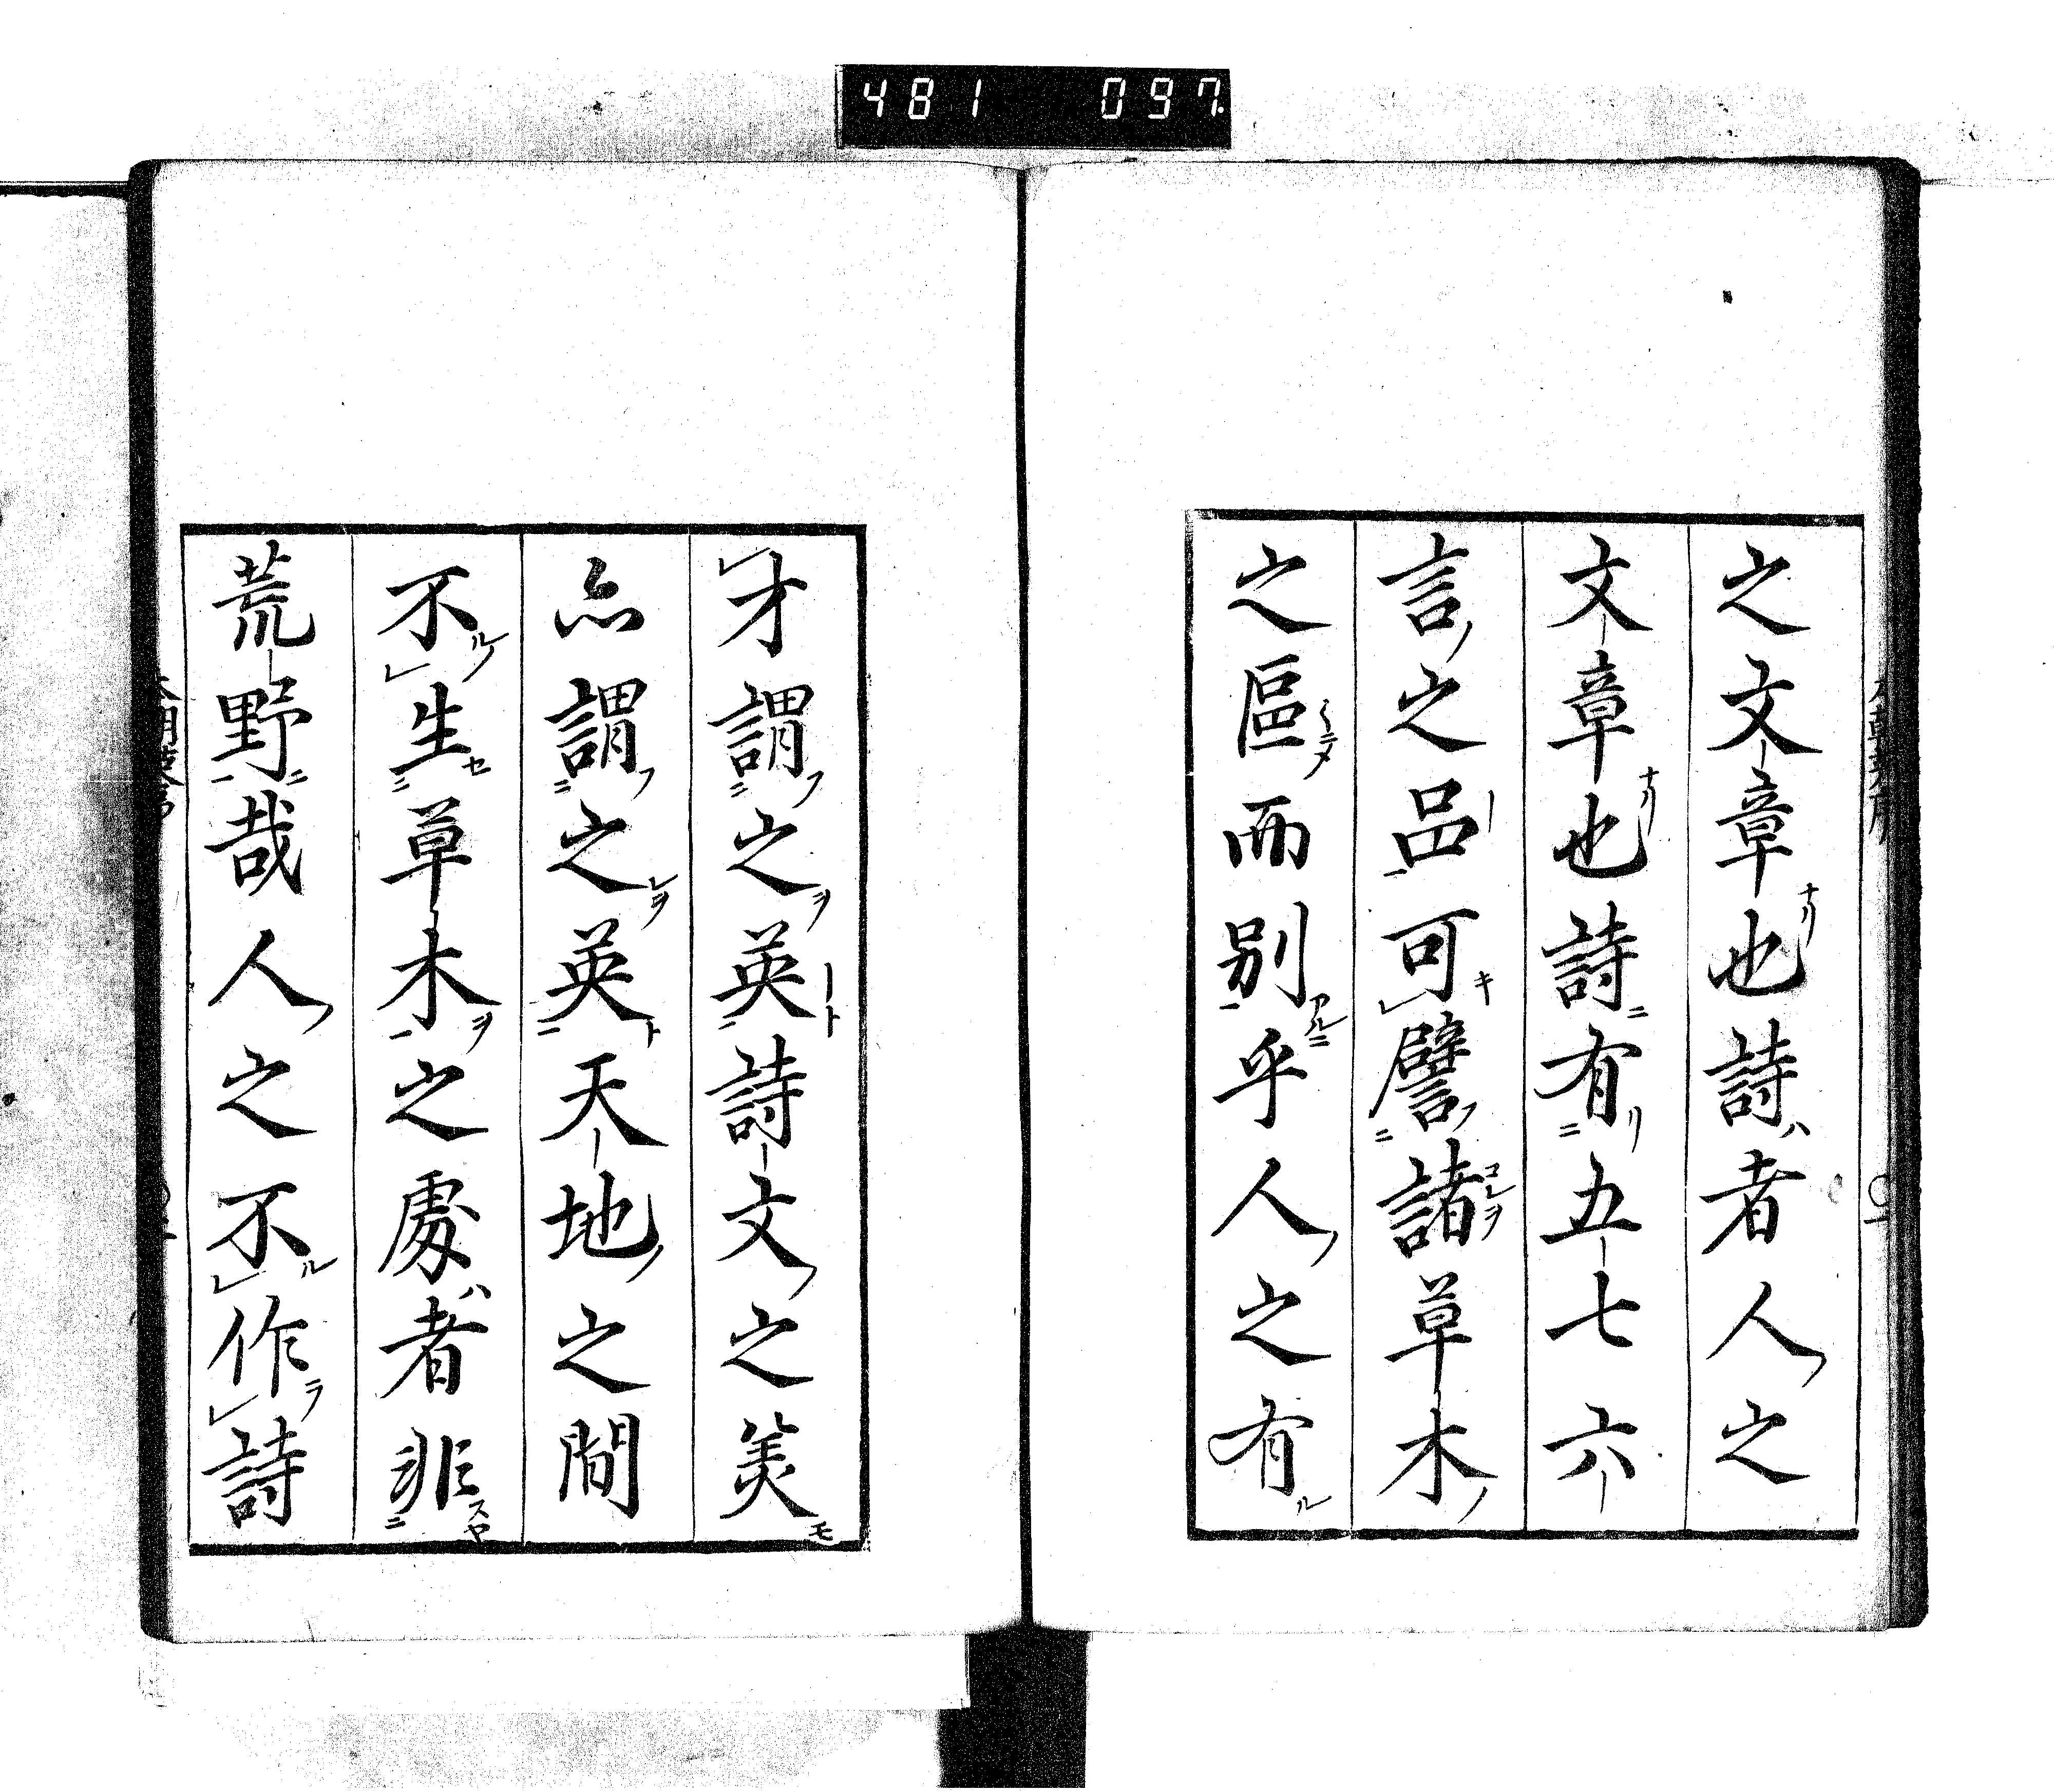 481 097.
之文章也詩者人之
文章也詩有五七六
言之品可譬諸草木
之區而別乎人之有
才謂之英詩文之美
亦謂之英天地之間
不生草木之處者非
荒野哉人之不作詩